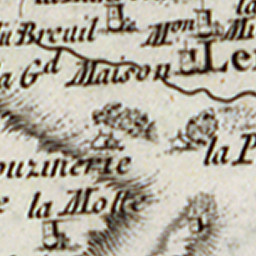 du Breuil Mon Mi
la Gd Maison Le
ouzinerie la P
e la Motte